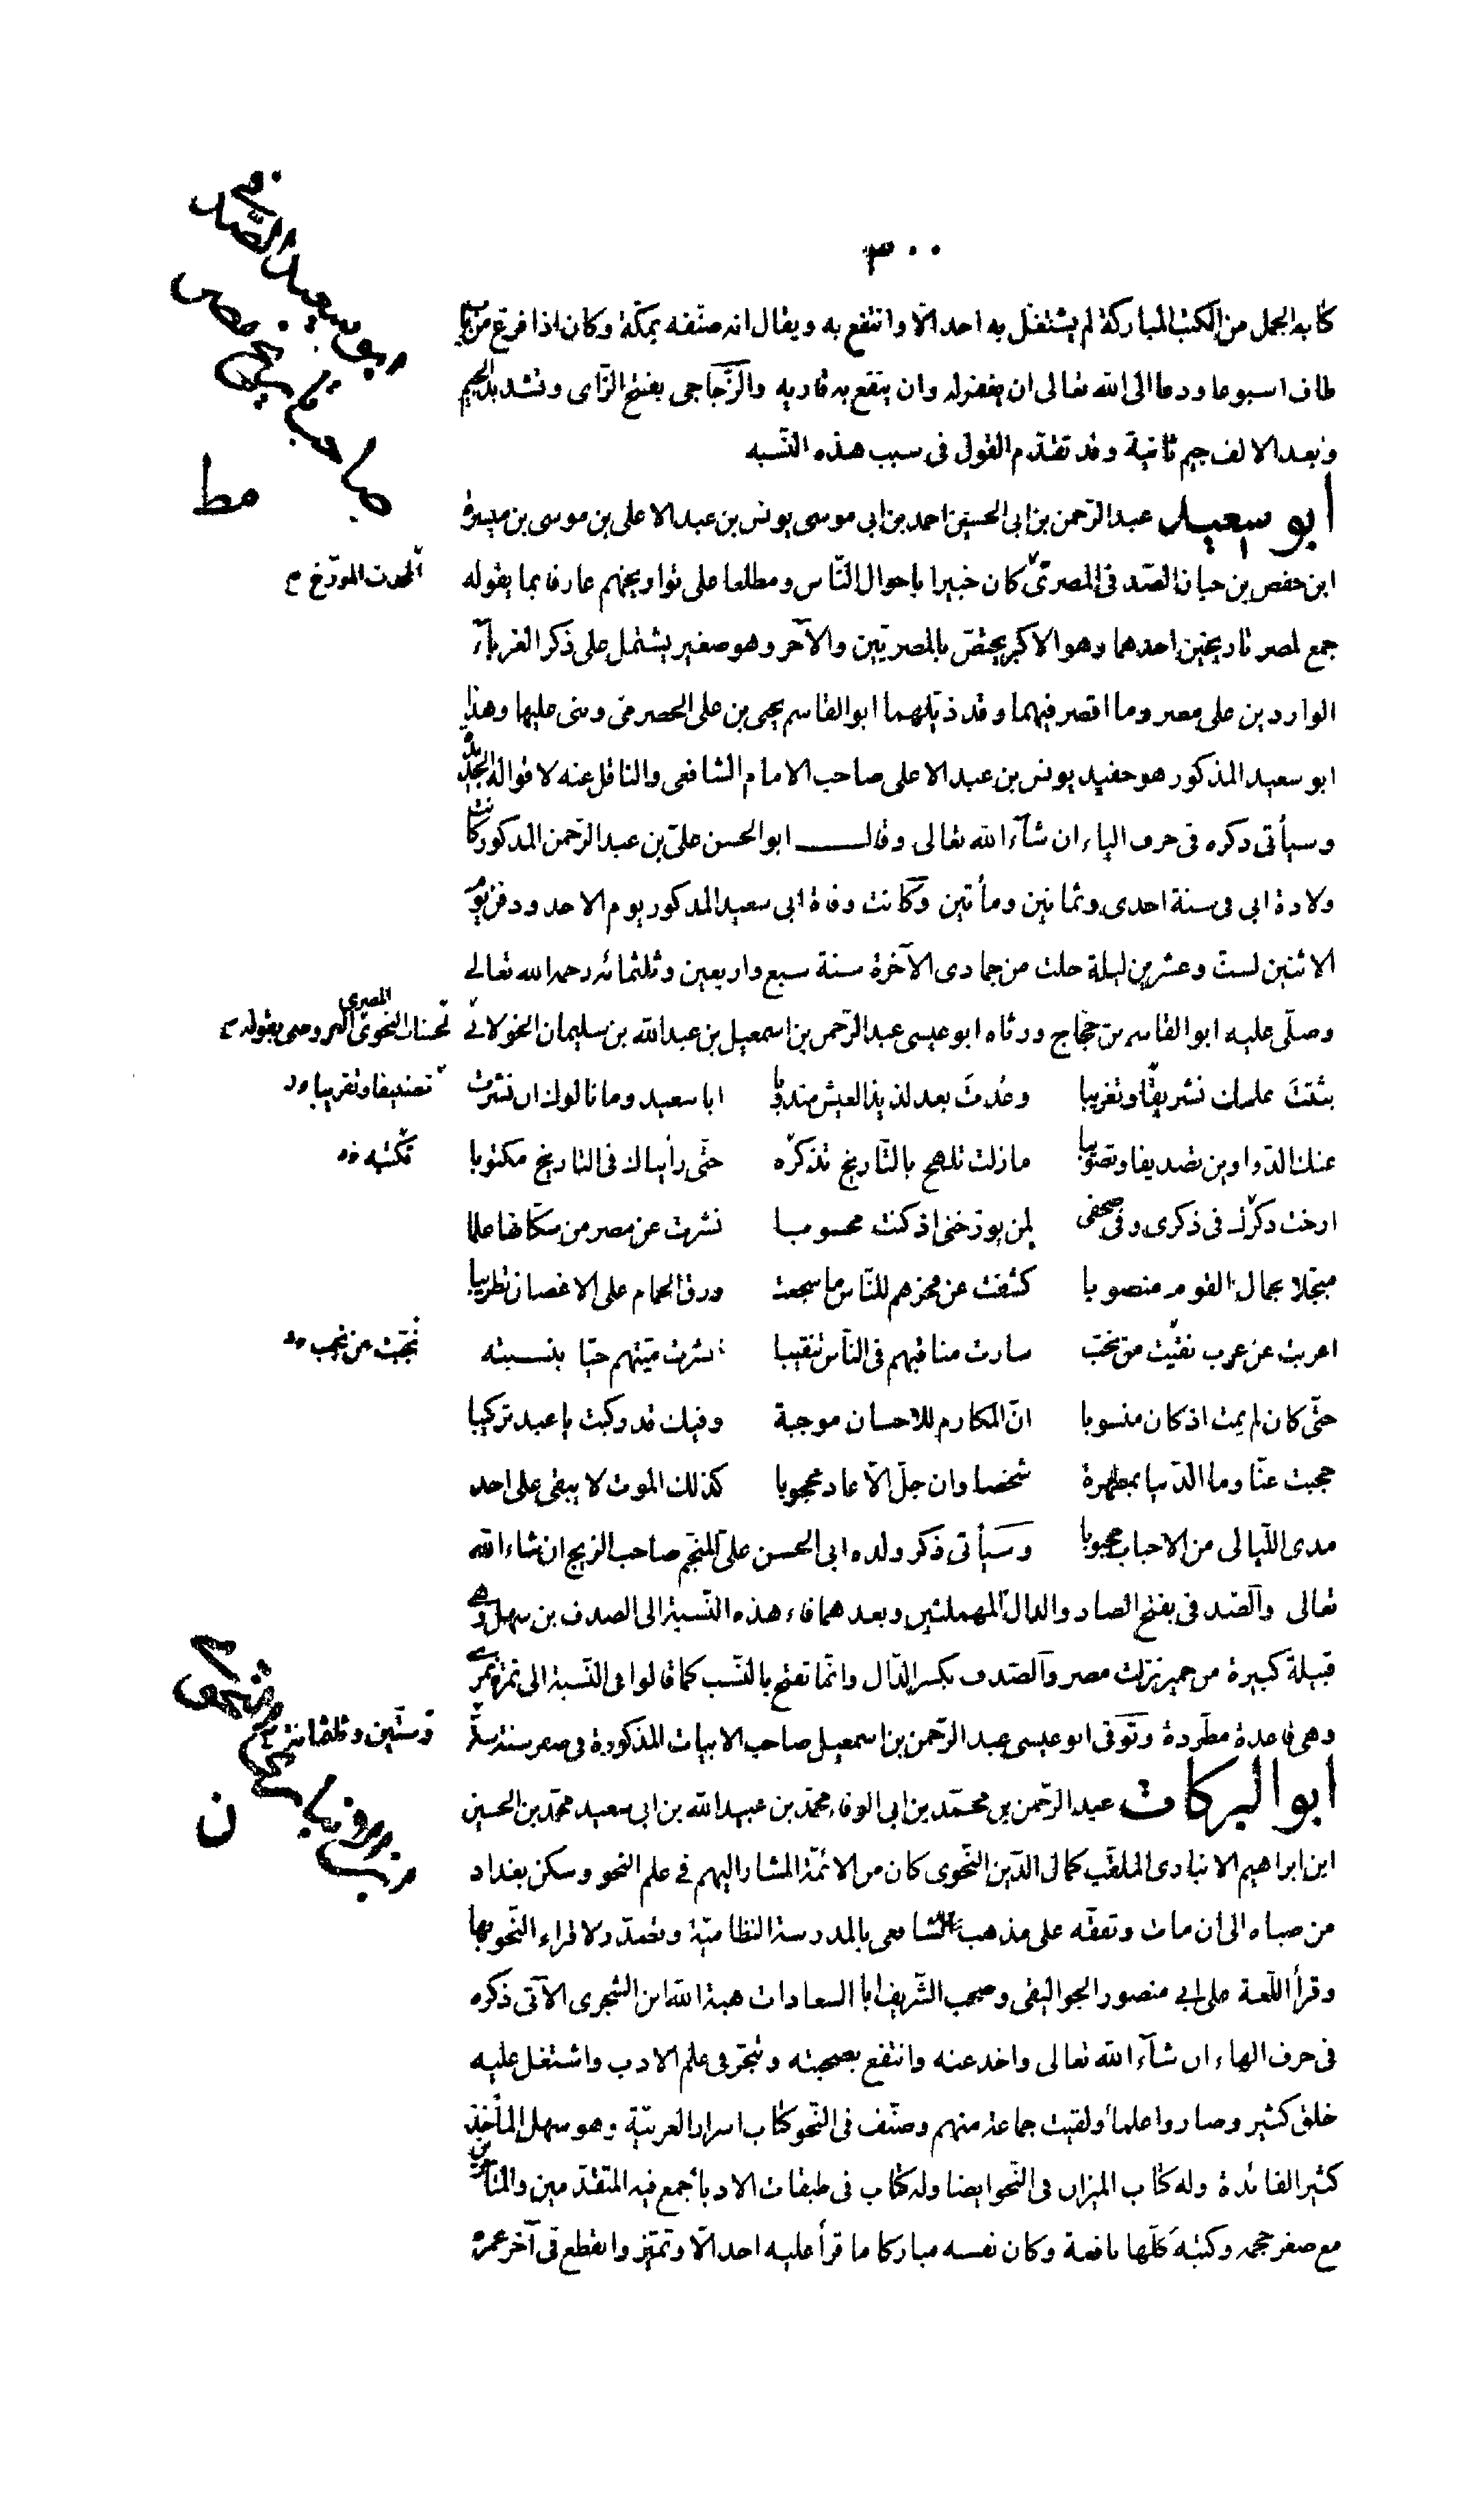 ٣٠٠
كتابه الجمل من الكتب المباركة لم يشتغل به احد الّا وانتفع به ويقال انه صنّفه بمكّة وكان اذا فرغ من باب
طاف اسبوعا ودعا الى الله تعالى ان يغفر له وان ينفع به قاريه والزّجاجى بفتح الزّاى وتشديد الجيم
وبعد الالف جيم ثانية وقد تقدّم القول فى سبب هذه النّسبه
ابو سعيد عبد الرّحمن بن ابى الحسين احمد بن ابى موسى يونس بن عبد الاعلى بن موسى بن ميسرة
ابن حفص بن حيان الصّدفى المصرىّ كان خبيرا باحوال النّاس ومطلعا على تواريخهم عارفا بما يقوله
المحدث المورّخ
جمع لمصر تاريخين احدهما وهو الاكبر يختصّ بالمصريّين والآخر وهو صغير يشتمل على ذكر الغرباء
الواردين على مصر وما اقصر فيهما وقد ذيّلهما ابو القاسم يحيى بن على الحضرمى وبنى عليها وهذا
ابو سعيد المذكور هو حفيد يونس بن عبد الاعلى صاحب الامام الشافعى والناقل عنه لاقواله الجديدة
وسيأتى ذكره فى حرف الياء ان شآء الله تعالى وقال ابو الحسن علىّ بن عبد الرّحمن المذكور كانت
ولادة ابى فى سنة احدى وثمانين ومأتين وكانت وفاة ابى سعيد المذكور يوم الاحد ودفن يوم
الاثنين لستّ وعشرين ليلة خلت من جمادى الآخرة سنة سبع واربعين وثلثمائه رحمه الله تعالى
وصلّى عليه ابو القاسم بن حجّاج ورثاه ابو عيسى عبد الرّحمن بن اسمعيل بن عبد الله بن سليمان الخولانى
الخشاب النحوى العروضى بقوله
المصرى
بثثت علمك تشريقا وتغريبا وعُدتَ بعد لذيذ العيش مندوبا ابا سعيد وما نالوك ان نشرت
تصنيفا وتقريبا
عنك الدّواوين تصديقا وتصويبا مازلت تلهج بالتّاريخ تذكره حتّى رأيناك فى التاريخ مكتوبا
تكتبه
ارخت ذكرك فى ذكرى وفى صحفى لمن يورخنى اذ كنت محسوبا نشرت عن مصر من سكّانها علما
مبجّلا بجمال القوم منصوبا كشفت عن فخرهم للنّاس ما سجعت ورق الحمام على الاغصان تطريبا
اعربت عن عرب نقّبت عن نخب سارت مناقبهم فى النّاس تنقيبا نشرت ميّتهم حيّا بنسبته
نجّبت عن نجب
حتّى كان لم يمت اذ كان منسوبا انّ المكارم للاحسان موجبة وفيك قد ركبت يا عبد تركيبا
حجبت عنّا وما الدّنيا بمظهرة شخصا وان جلّ الّا عاد محجوبا كذلك الموت لا يبقى على احد
مدى اللّيالى من الاحباب محبوبا وسيأتى ذكر ولده ابى الحسن علىّ المنجّم صاحب الزيج ان شاء الله
تعالى والصّدفى بفتح الصاد والدال المهملتين وبعدهما فاء هذه النّسبة الى الصدف بن سهل وهى
قبيلة كبيرة من حمير نزلت مصر والصّدف بكسر الدّال وانّما تفتح بالنّسب كما قالوا فى النّسبة الى نمرة نمرى
وهى قاعدة مطّردة وتوفى ابو عيسى عبد الرّحمن بن اسمعيل صاحب الابيات المذكورة فى صفر سنة ستّ
وستّين وثلثمائة
ابو البركات عبد الرّحمن بن محمّد بن ابى الوفاء محمّد بن عبيد الله بن ابى سعيد محمّد بن الحسين
ابن ابراهيم الانبارى الملقّب كمال الدّين النّحوى كان من الائمّة المشار اليهم فى علم النحو وسكن بغداد
من صباه الى ان مات وتفقّه على مذهب الشافعى بالمدرسة النظاميّة وتصدّر لاقراء النّحو بها
وقرأ اللّغة على ابى منصور الجواليقى وصحب الشّريف ابا السعادات هبة الله ابن الشّجرى الآتى ذكره
فى حرف الهاء ان شآء الله تعالى واخذ عنه وانتفع بصحبته وتبحّر فى علم الادب واشتغل عليه
خلق كثير وصاروا علماء ولقيت جماعة منهم وصنّف فى النّحو كتاب اسرار العربيّة وهو سهل المأخذ
كثير الفائدة وله كتاب الميزان فى النّحو ايضا وله كتاب فى طبقات الادباء جمع فيه المتقدّمين والمتأخّرين
مع صغر حجمه وكتبه كلّها نافعة وكان نفسه مباركا ما قرأ عليه احد الّا وتميّز وانقطع فى آخر عمره
ابو سعيد الصّدفى
صاحب تاريخ مصر
مط
ن